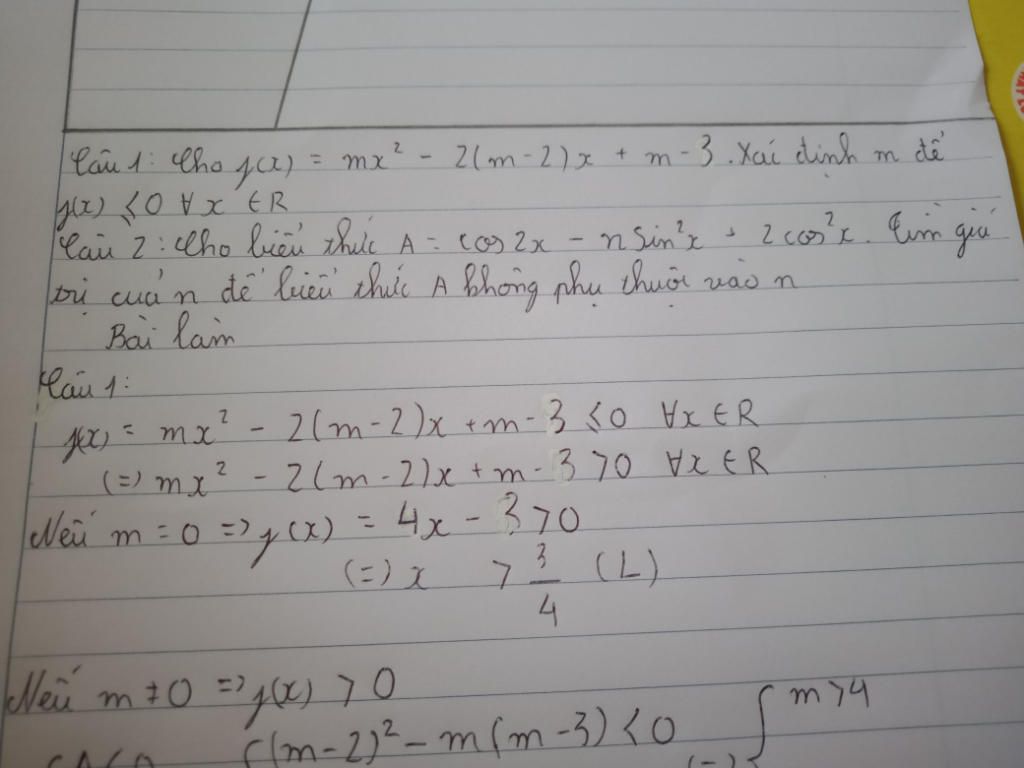 Câu 1: Cho f(x) = mx² - 2(m-2)x + m - 3. Xác định m để
f(x) ≤0 ∀x ∈R
Câu 2: Cho biểu thức A = cos2x - n sin²x + 2cos²x. Tìm giá
trị của n để biểu thức A không phụ thuộc vào n
Bài làm
Câu 1:
f(x) = mx² - 2(m-2)x + m - 3 ≤0 ∀x ∈R
(=) mx² - 2(m-2)x + m - 3 >0 ∀x ∈R
Nếu m = 0 => f(x) = 4x - 3 >0
(=) x > 3/4 (L)
Nếu m ≠0 => f(x) > 0
{(m-2)² - m(m-3) <0 (=) { m >4